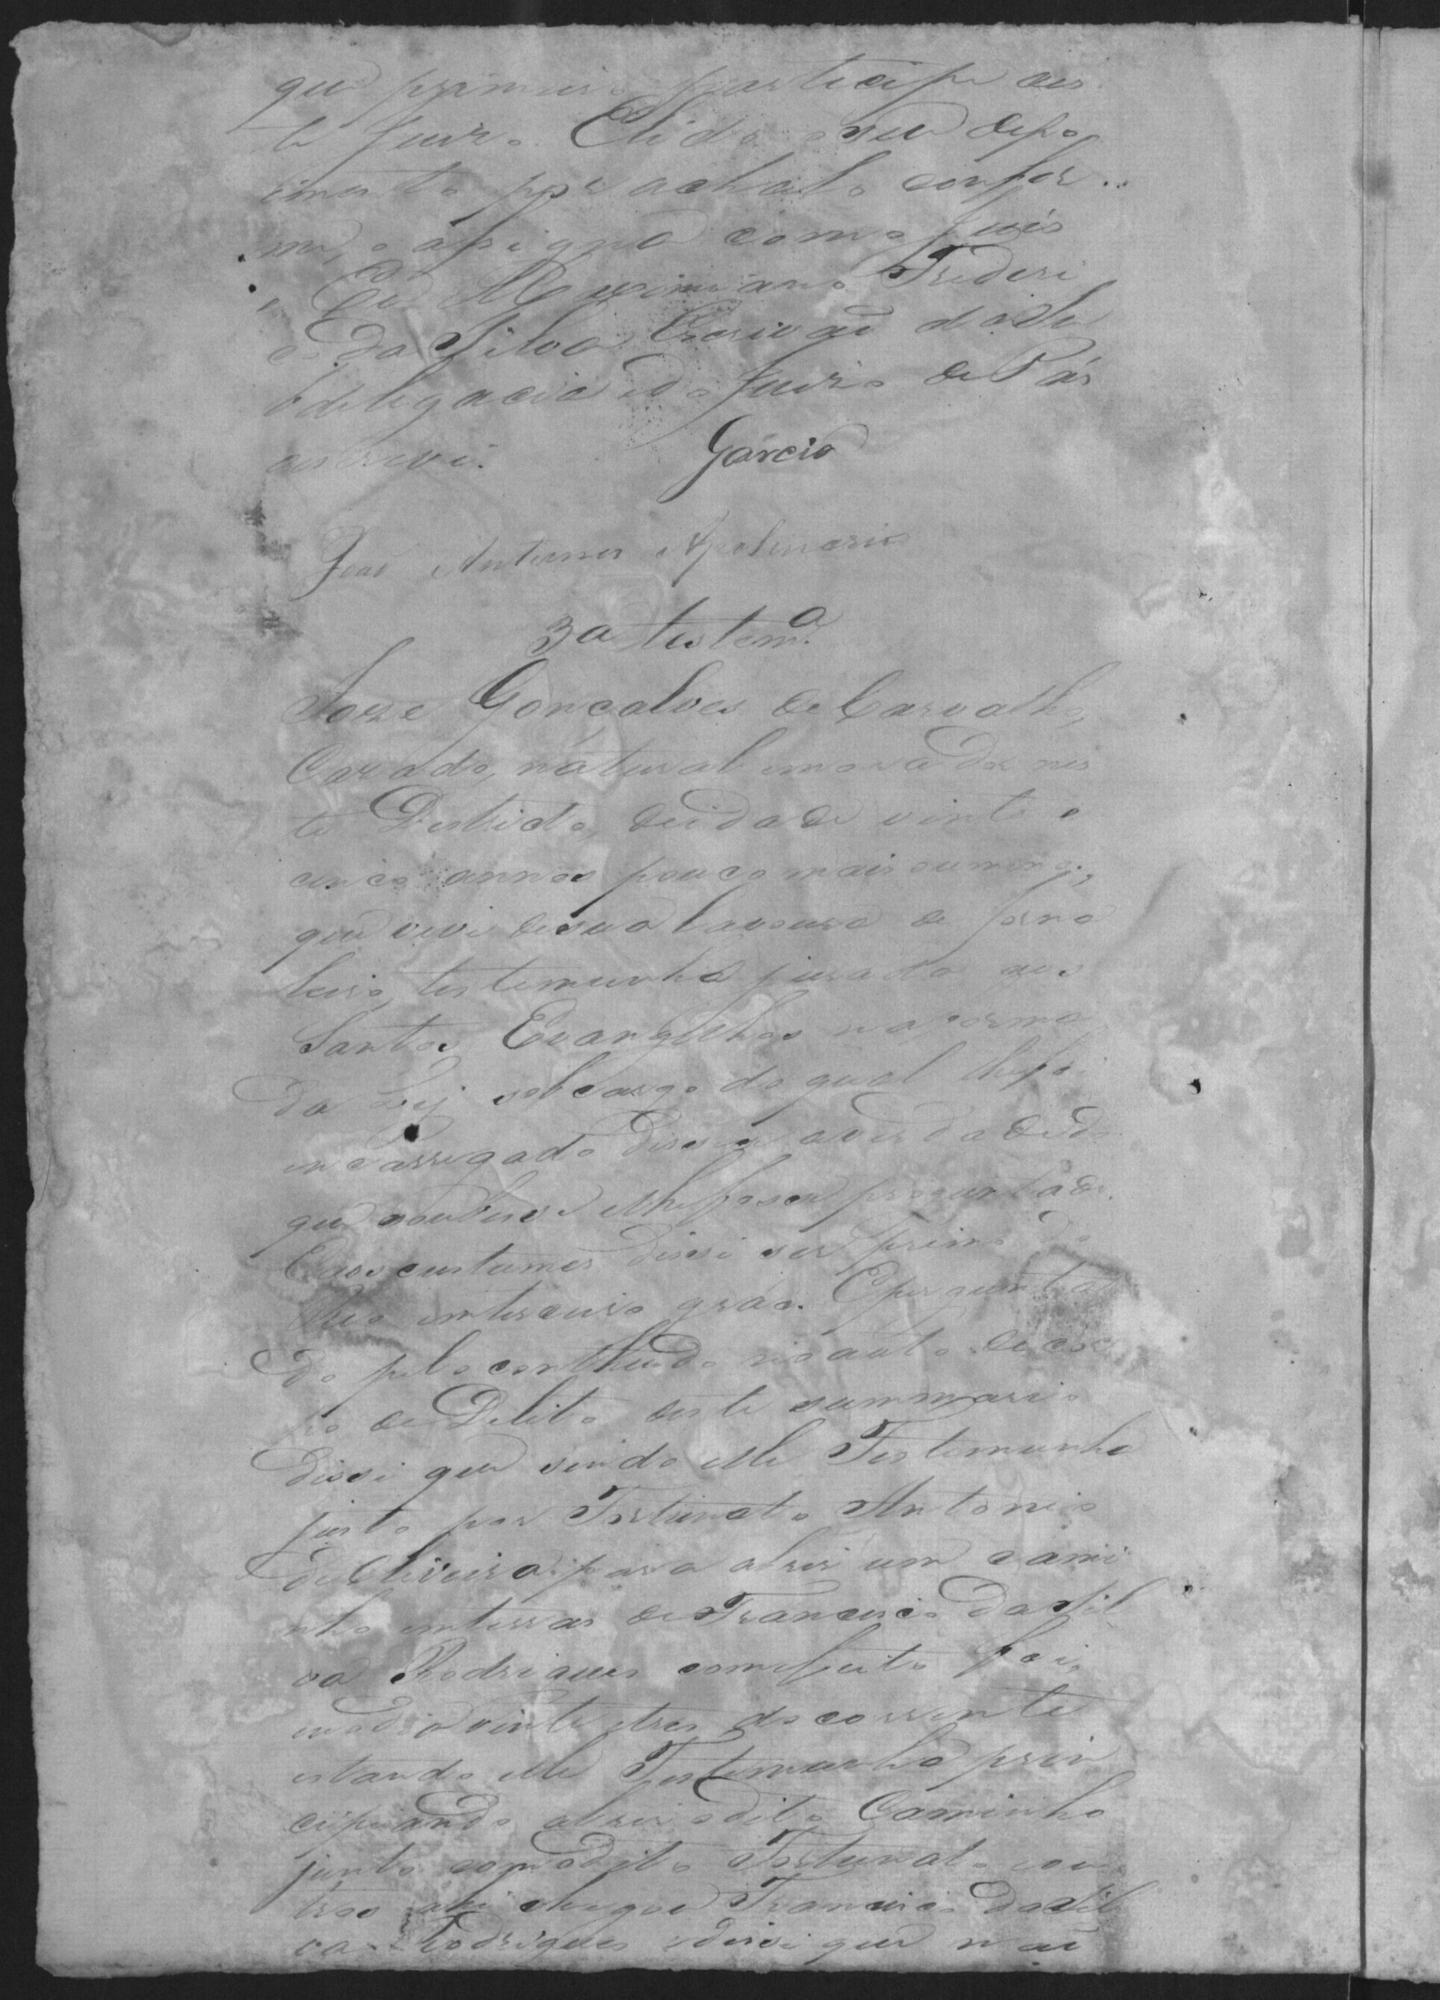 que primeiro participe aes
te Juizo. E lido o seu depo
imento por achalo confor
me, o asigna com o Juis
Eu Maximiano Frideri
co da Silva Escrivaõ da Su
bdelegacia e do Juizo de Pás
escrevi.
Garcia
João Antunes Apolinario
3a testem.a
Jose Gonçalves de Carvalho,
Cazado, natural e morador nes
te Destricto, de idade vinte e
cinco annos pouco mais ou menos,
que vive de sua lavoura de jorna
leiro, testemunha jurada aos
Santos Evangelhos na forma
da Lej sob cargo do qual lhe foi
encarregado dicesse a verdade do
que soubesse e lhe fosse preguntado.
E aos custumes disse ser primo do
Reo em terceiro grao. E pergunta
do pelo contheudo no auto de cor
po de Delito deste summario
disse que sendo elle Testemunha
justo por Fortunato Antonio
de Oliveira para abrir um cami
nho em terras de Francisco da Sil
va Rodrigues com efeito foi,
e no dia vinte e tres do corrente
estando elle Testemunha prin
cipiando abrir o dito Caminho
junto com o dito Fortunato e ou
tros ahi chegou Francisco da Sil
va Rodrigues e disse que naõ